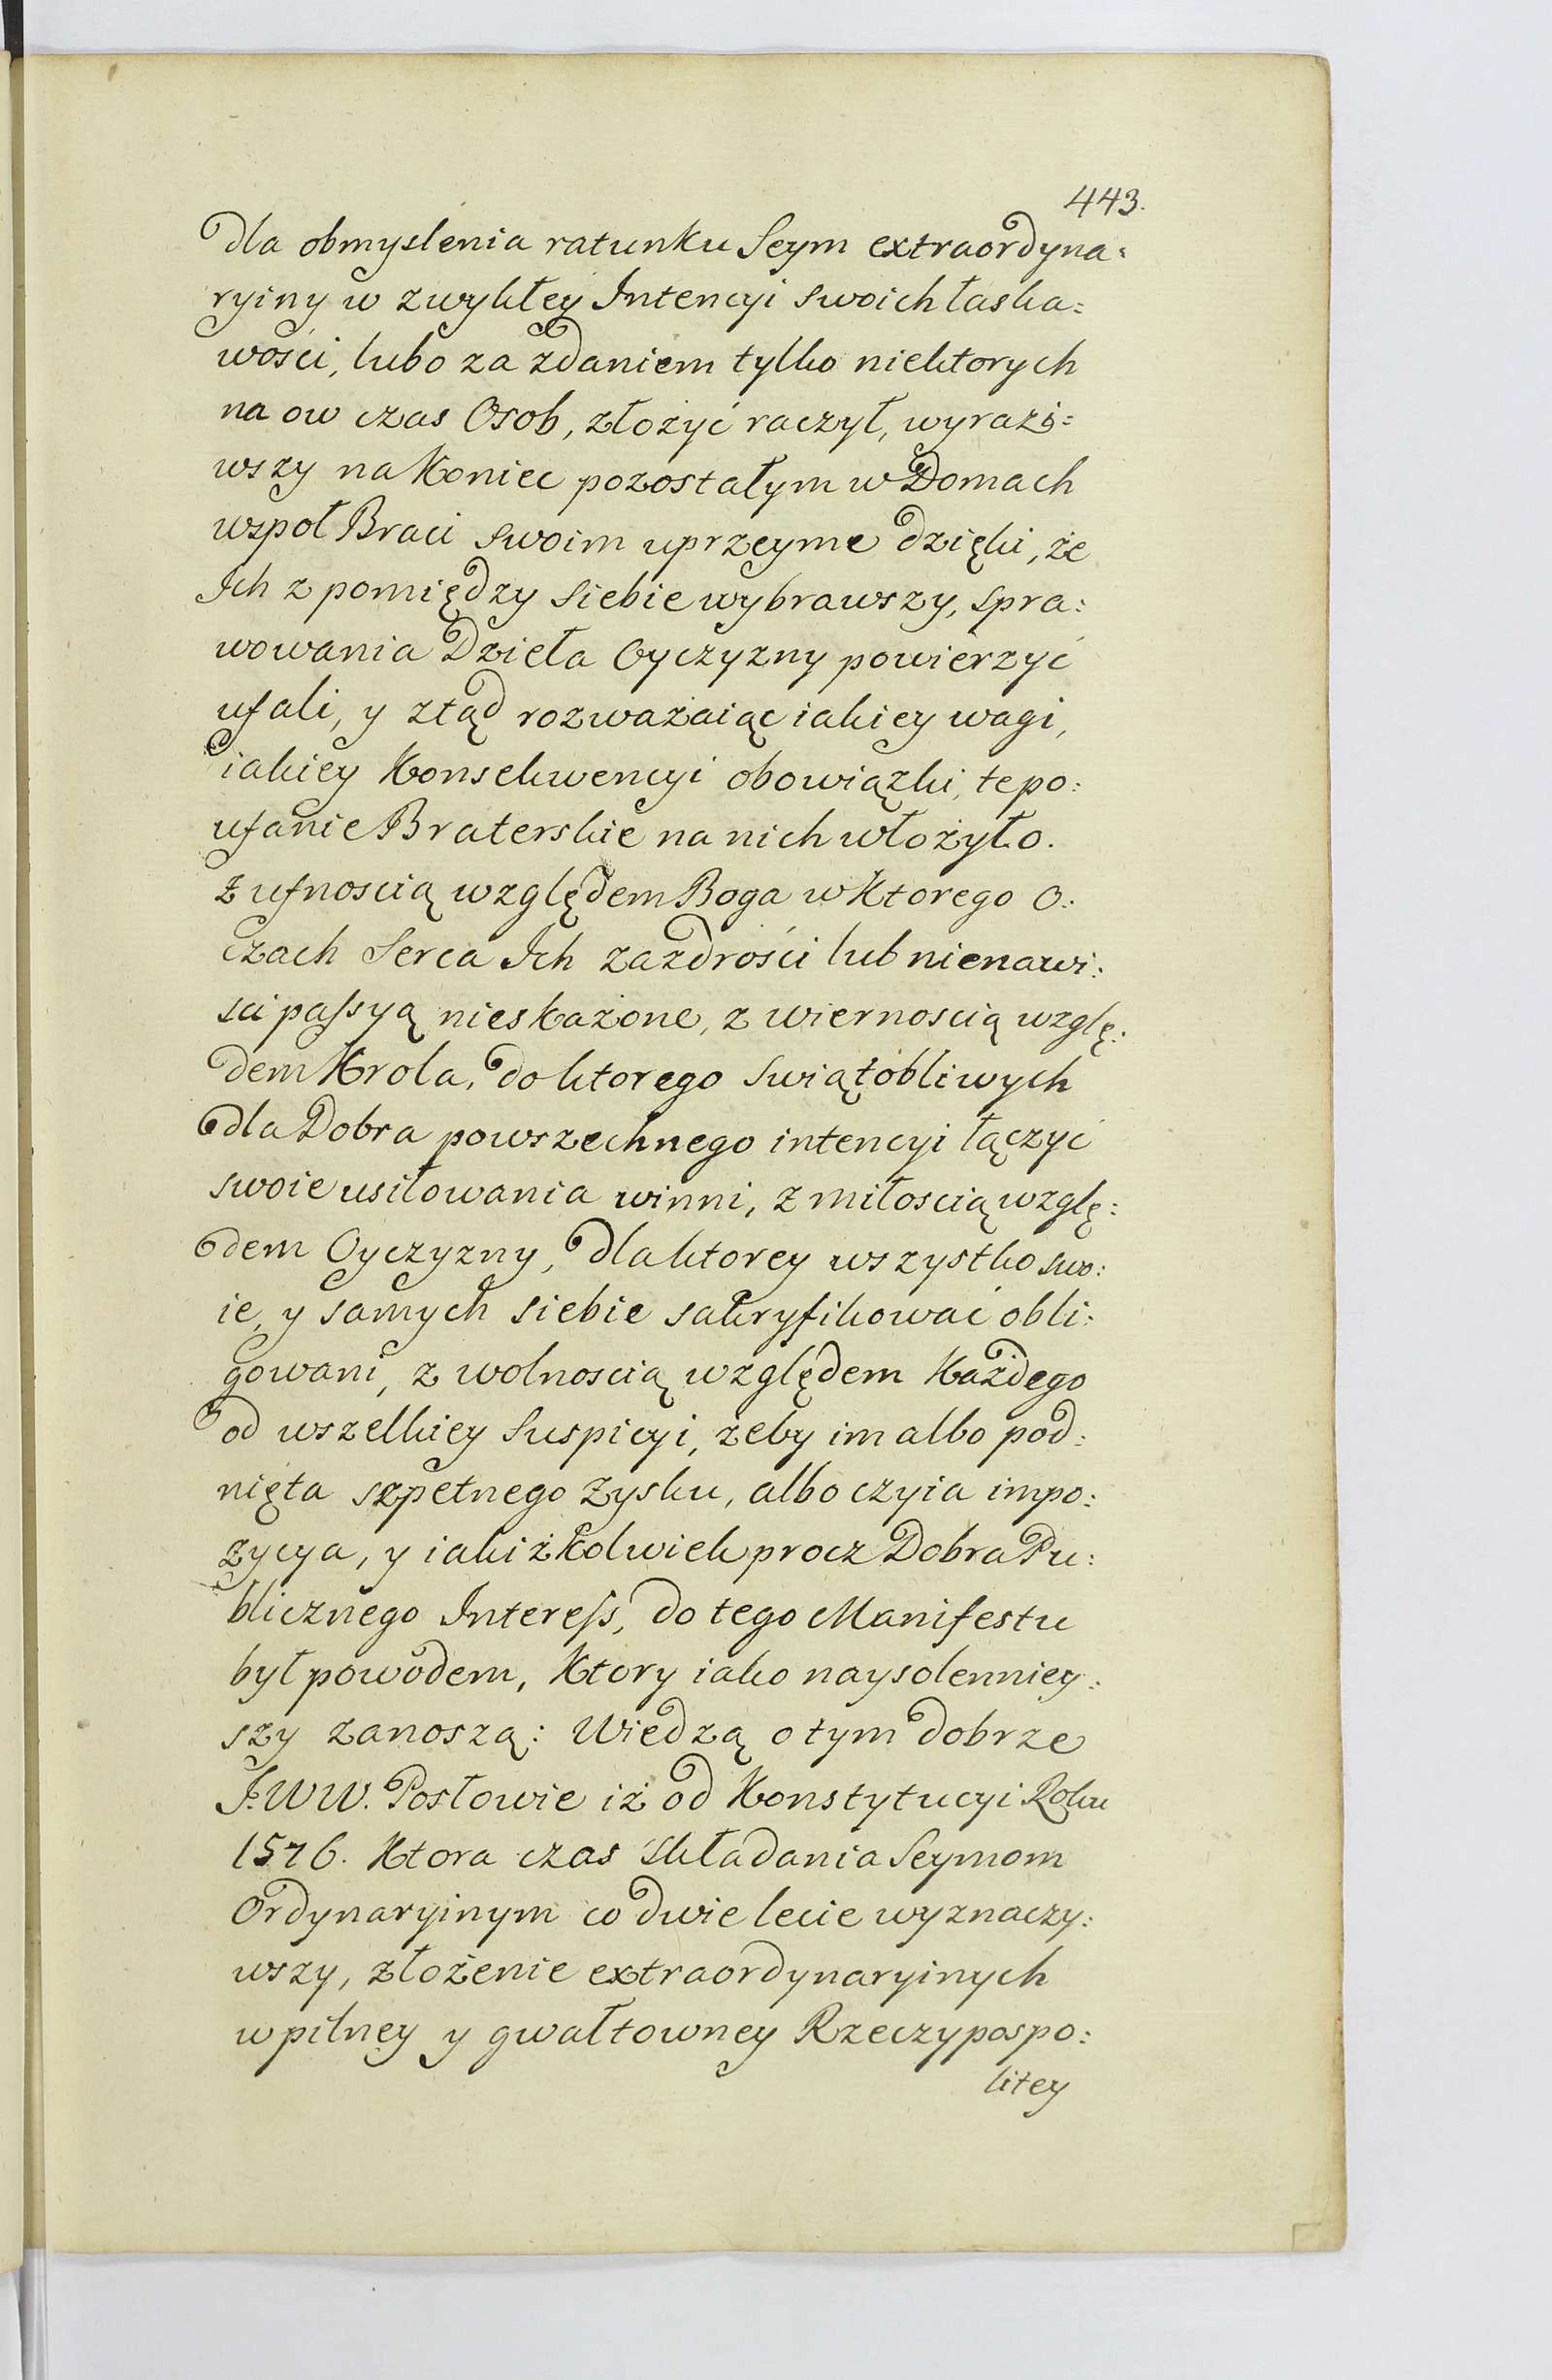 443.
dla obmyslenia ratunku Seym extraordyna=
ryiny w zwykłey Intencyi swoich łaska=
wości, lubo za zdaniem tylko niektorych
na ow czas Osob, złożyć raczył, wyrazi=
wszy na Koniec pozostałym w Domach
wspoł Braci swoim uprzeyme dzięki, że
Ich z pomiędzy siebie wybrawszy, spra:
wowania Dzieła Oyczyzny powierzyć
ufali, y ztąd rozważaiąc iakiey wagi,
iakiey Konsekwencyi obowiązki, te po:
ufanie Braterskie na nich włożyło.
Z ufnoscią względem Boga w Ktorego O:
czach Serca Ich zazdrości lub nienawi:
sci passyą nieskażone, z wiernoscią wzglę:
dem Krola, do ktorego swiątobliwych
dla Dobra powszechnego intencyi łączyć
swoie usiłowania winni, z miłoscią wzglę:
dem Oyczyzny, dla ktorey wszystko swo:
ie, y samych siebie sakryfikować obli:
gowani, z wolnoscią względem Każdego
od wszelkiey Suspicyi, żeby im albo pod:
nięta szpetnego zysku, albo czyia impo:
zycya, y iakiżkolwiek procz Dobra Pu:
blicznego Interess, do tego Manifestu
był powodem, Ktory iako naysolenniey:
szy zanoszą: Wiedzą o tym dobrze
J.WW. Posłowie iż od Konstytucyi Roku
1576. Ktora czas składania Seymom
Ordynaryinym co dwie lecie wyznaczy:
wszy, złożenie extraordynaryinych
w pilney y gwałtowney Rzeczypospo:
litey